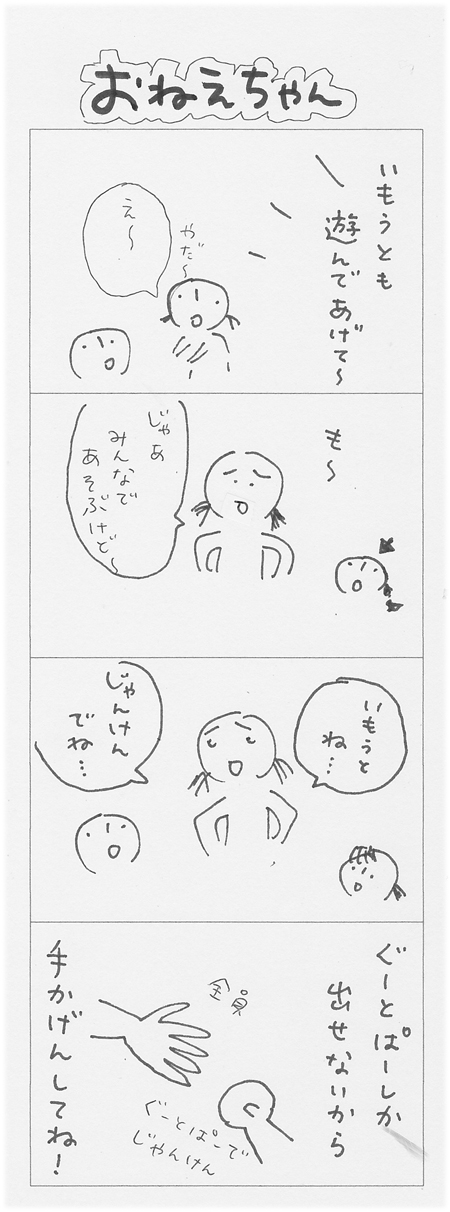 おねえちゃん
いもうとも
遊んであげて〜
やだ〜
え〜
も〜
じゃあ
みんなで
あそぶけど〜
いもうと
ね…
じゃんけん
でね…
ぐーとぱーしか
出せないから
全員
ぐーとぱーで
じゃんけん
手かげんしてね!